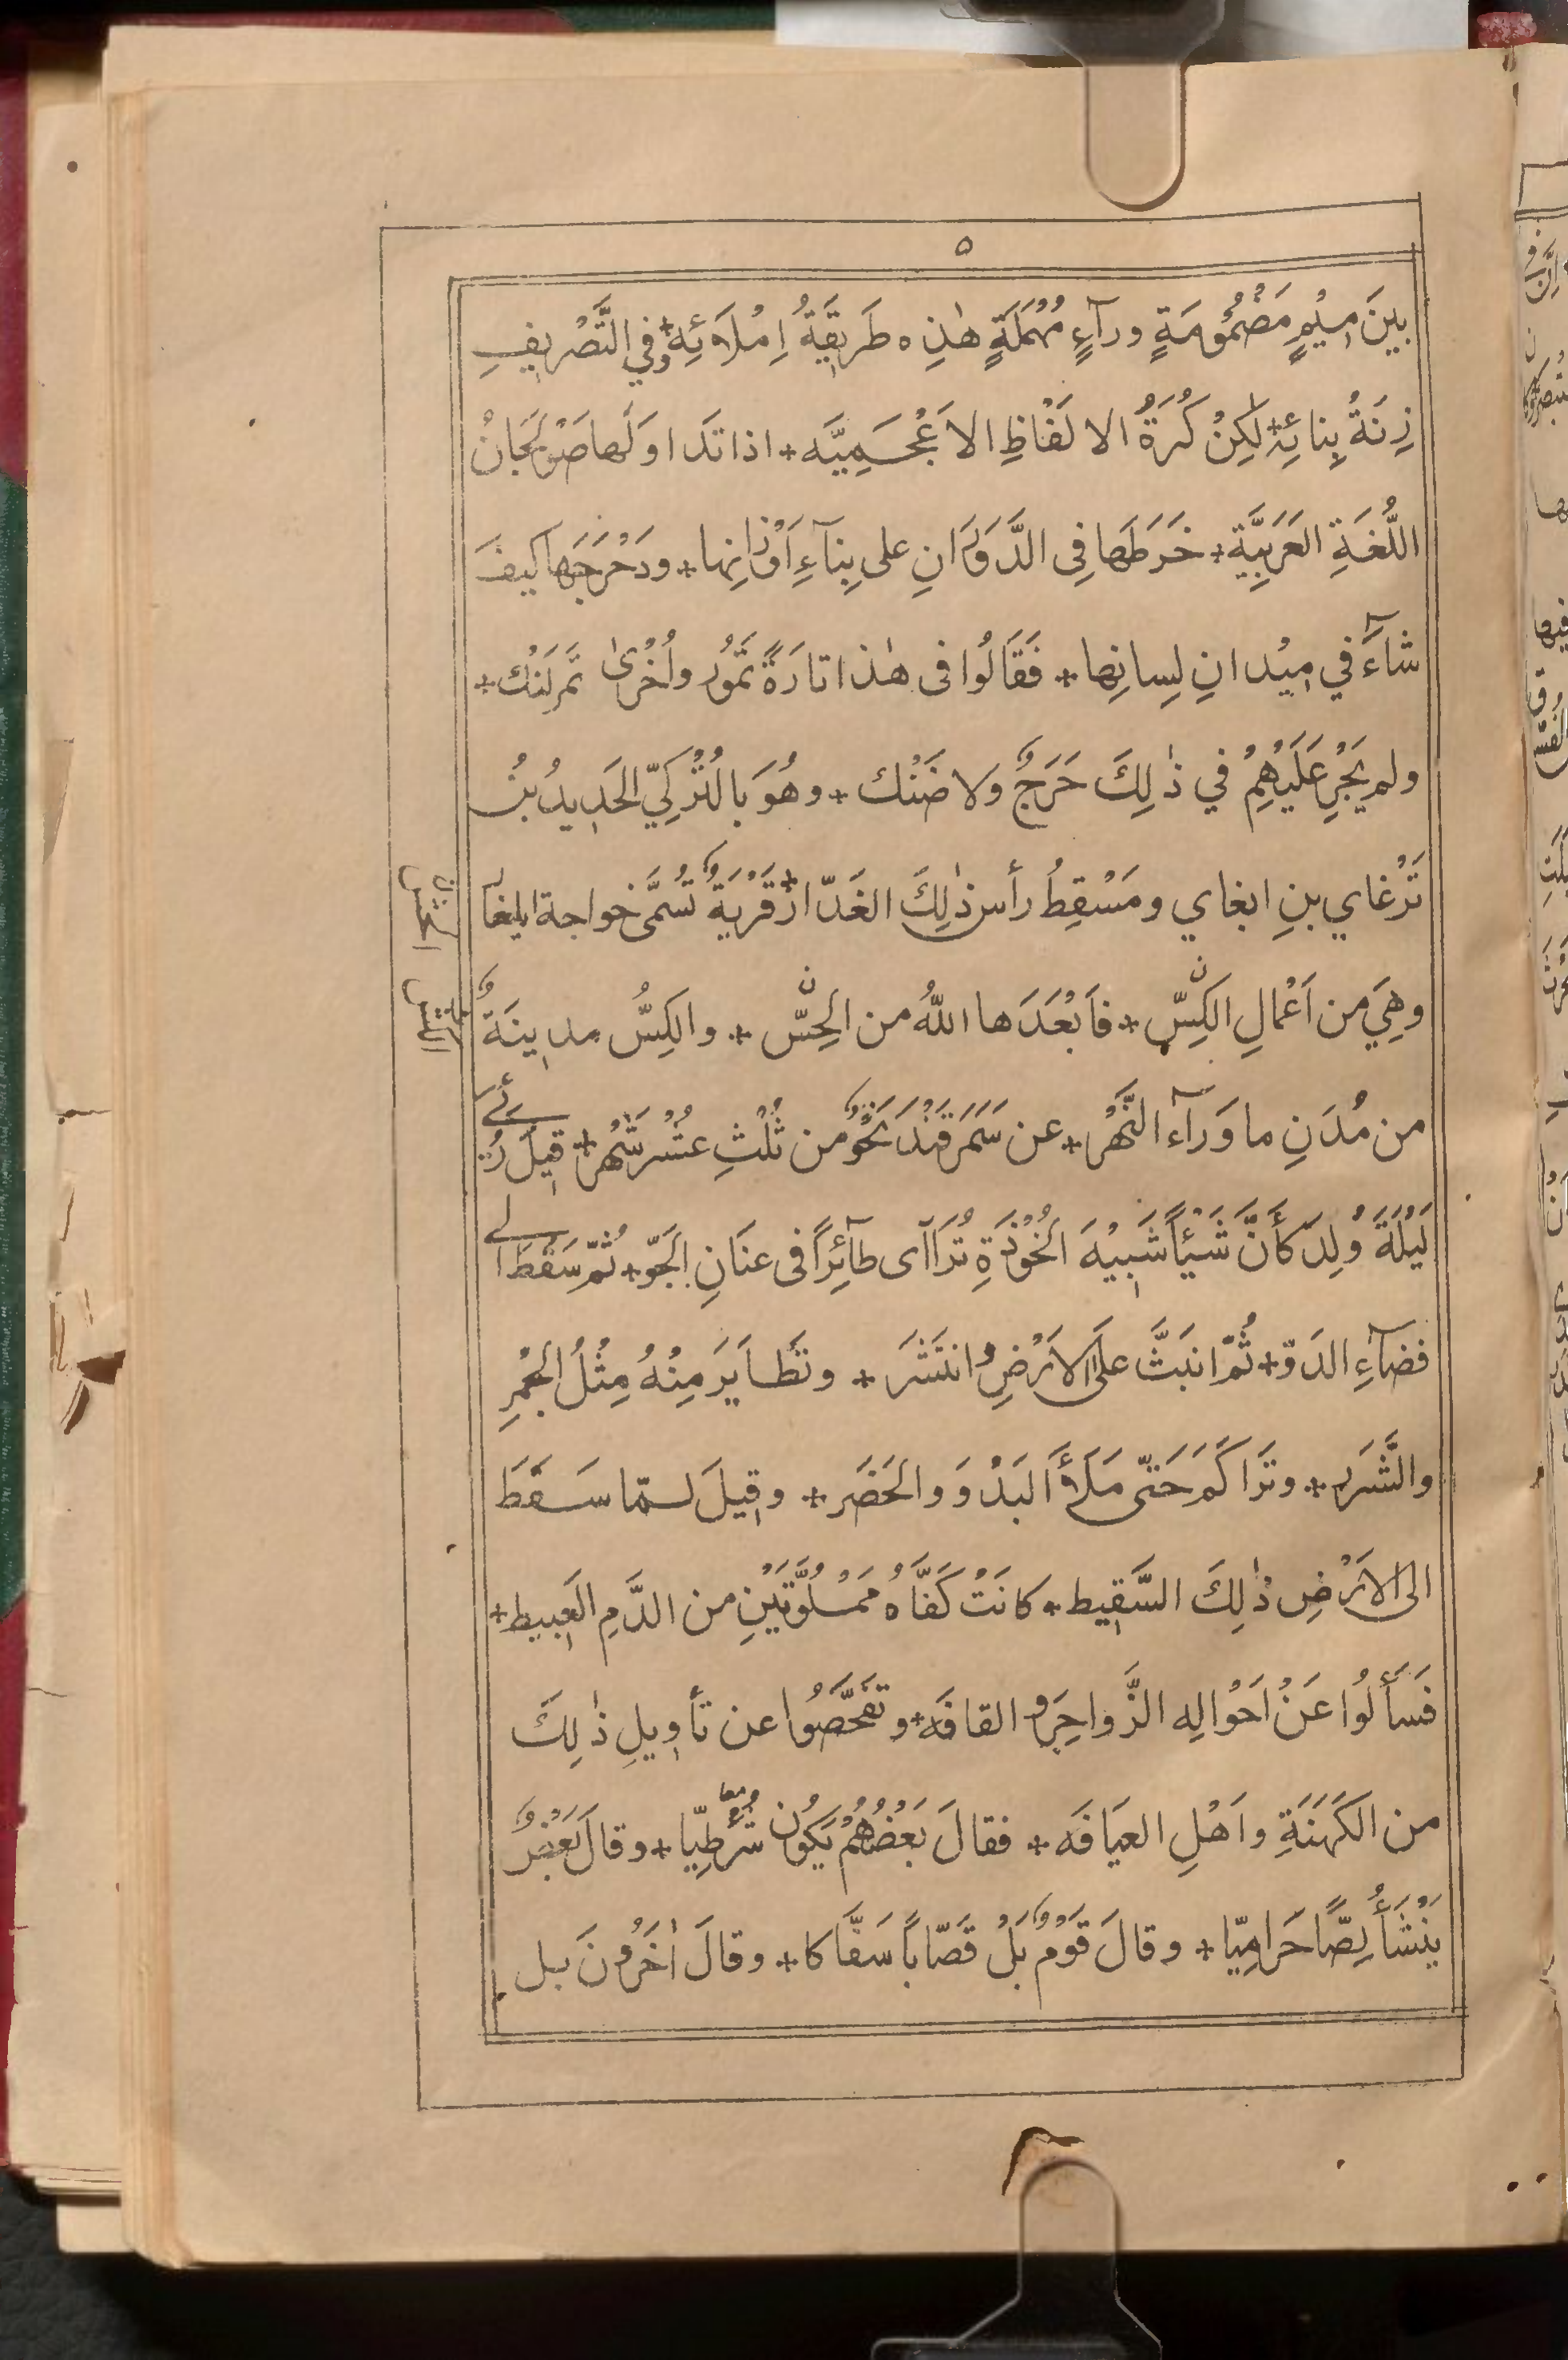 ٥
بينَ مِيْمٍ مَضْمُوْمَةٍ ورآءٍ مُهْمَلَةٍ هٰذِه طَرِيقَةُ اِمْلَائِهٖ + وفِي التَّصْرِيفِ
زِنَةُ بِنائِهٖ + لٰكِنْ كُرَةُ الالفَاظِ الاَعْجَمِيَّه + اذا تَدَاوَلَها صَوْلَجانُ
اللُّغَةِ العَرَبِيَّة + خَرَطَها فِى الدَّوَرَانِ على بِنآءِ اَوْزَانِها + ودَحْرَجَها كيفَ
شآءَ في مِيْدانِ لِسانِها + فَقَالُوا فى هٰذا تارَةً تَمُوْر واُخْرٰى تَمرلَنْك +
ولم يَجْرِ عَلَيْهِمْ في ذٰلِكَ حَرَجٌ وَلا ضَنْك + وهُوَ بالتُّرْكِيّ الحَدِيدُ بْنُ
تَرْغاي بنِ ابغاي ومَسْقِطُ رأسِ ذٰلِكَ الغَدّار + قَرْيَةٌ تُسَمَّى خواجة ايلغار
وهِيَ من اَعْمالِ الكِسّ + فَاَبْعَدَها اللّٰهُ من الحِسّ + والكِسُّ مدِينَةٌ
من مُدَنِ ما وَرآء النَّهْر + عن سَمَرَقَنْدَ نَحْوٌ من ثُلْثِ عشْر شَهْر + قِيلَ رُئِيَ
لَيْلَةَ وُلِدَ كَأَنَّ شَيْئًا شَبِيْهَ الخُوْذَةِ تُرَاآى طآئِرًا فى عنَانِ الجَوّ + ثُمّ سَقَطَ الى
فضآءِ الدَوّ + ثُمّ انبَثَّ علَى الاَرْضِ وانتَشَرَ + وتَطايَرَ مِنْهُ مِثْلُ الجَمْرِ
والشَّرَر + وتَرَاكَمَ حَتّى مَلَأَ البَدْوَ والحَضَر + وقِيلَ لـمّا سَقَطَ
الى الاَرْضِ ذٰلِكَ السَّقِيط + كانَتْ كَفَّاهُ مَمْلُوَّتَيْنِ من الدَّمِ العَبِيط +
فَسَأَلُوا عَنْ اَحْوَالِه الزَّواجِرَ والقافَه + وتَفَحَّصُوا عن تَأوِيلِ ذٰلِكَ
من الكَهَنَةِ واَهْلِ العيَافَه + فقالَ بَعْضُهُمْ يَكُون شُرْطِيّا + وقالَ بَعْضٌ
يَنْشَأُ لِصًّا حَرَامِيّا + وقالَ قَوْمٌ بَلْ قَصّابًا سَفَّاكا + وقالَ اٰخَرُونَ بل